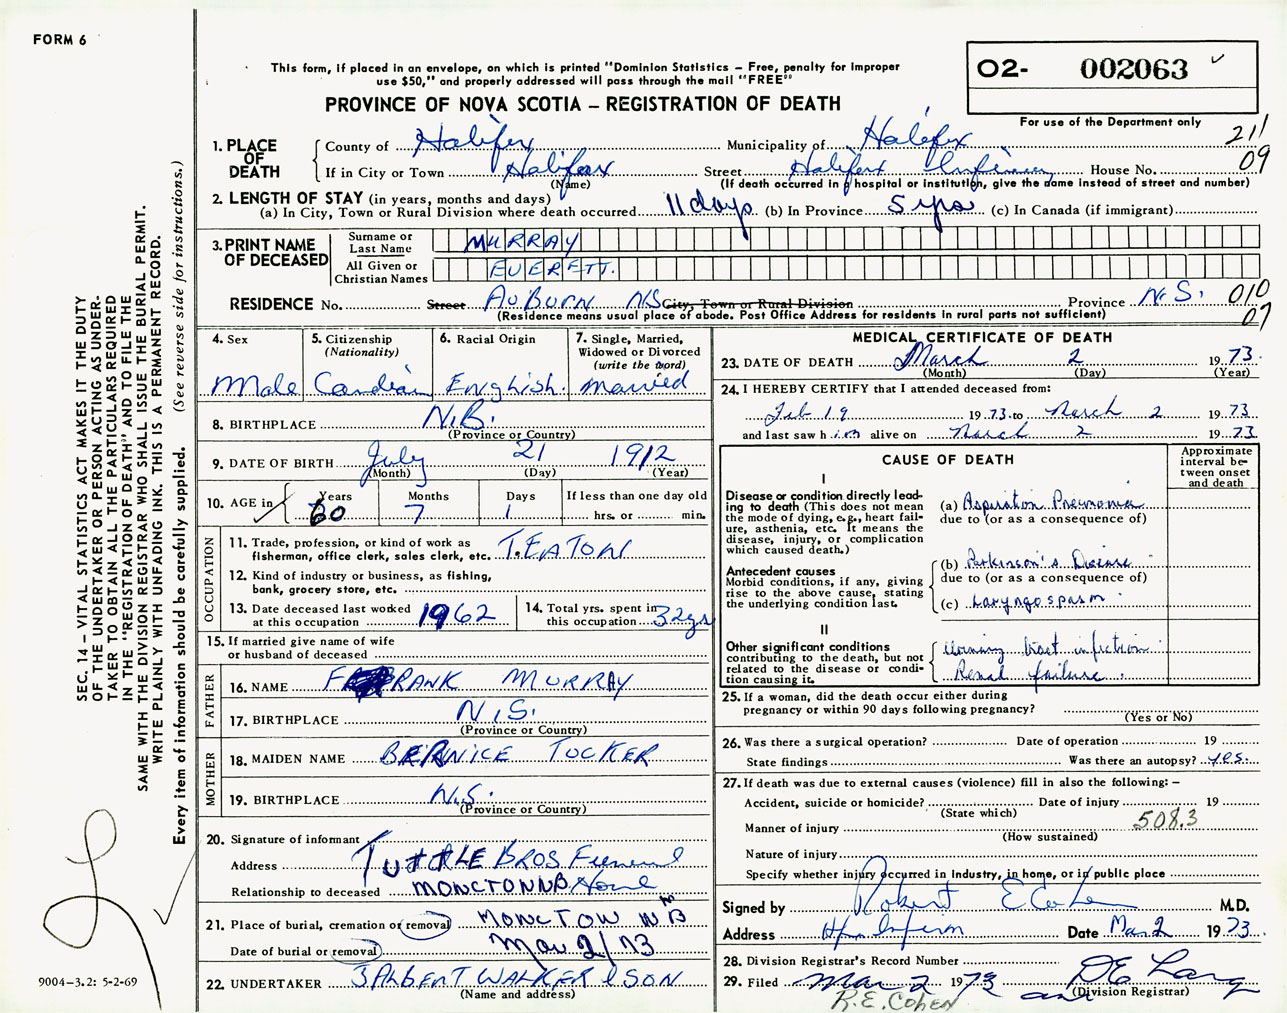 FORM 6
This form, if placed in an envelope, on which is printed "Dominion Statistics – Free, penalty for improper
use $50," and properly addressed will pass through the mail "FREE"
O2- 002063
PROVINCE OF NOVA SCOTIA – REGISTRATION OF DEATH
For use of the Department only
211
09
1. PLACE OF DEATH
County of Halifax Municipality of Halifax
If in City or Town Halifax Street Halifax Infirmary House No.
(Name) (If death occurred in a hospital or institution, give the name instead of street and number)
2. LENGTH OF STAY (in years, months and days)
(a) In City, Town or Rural Division where death occurred 11 days (b) In Province 5 yrs (c) In Canada (if immigrant)
3. PRINT NAME OF DECEASED
Surname or Last Name MURRAY
All Given or Christian Names EVERETT.
RESIDENCE No. Street AUBURN NS City, Town or Rural Division Province N.S. 010
(Residence means usual place of abode. Post Office Address for residents in rural parts not sufficient) 07
4. Sex Male
5. Citizenship (Nationality) Candian
6. Racial Origin English.
7. Single, Married, Widowed or Divorced (write the word) Married
8. BIRTHPLACE N.B.
(Province or Country)
9. DATE OF BIRTH July 21 1912
(Month) (Day) (Year)
10. AGE in Years 60 Months 7 Days 1 If less than one day old
hrs. or min.
OCCUPATION
11. Trade, profession, or kind of work as
fisherman, office clerk, sales clerk, etc. T.EATON
12. Kind of industry or business, as fishing,
bank, grocery store, etc.
13. Date deceased last worked
at this occupation 1962
14. Total yrs. spent in
this occupation 32yrs
15. If married give name of wife
or husband of deceased
FATHER
16. NAME FRANK MURRAY
17. BIRTHPLACE N.S.
(Province or Country)
MOTHER
18. MAIDEN NAME BERNICE TUCKER
19. BIRTHPLACE N.S.
(Province or Country)
20. Signature of informant
Address TUTTLE BROS Funeral
Relationship to deceased MONCTON NB Home
21. Place of burial, cremation or removal MONCTON NB
Date of burial or removal Mar 2/73
22. UNDERTAKER J ALBERT WALKER & SON
(Name and address)
MEDICAL CERTIFICATE OF DEATH
23. DATE OF DEATH March 2 1973.
(Month) (Day) (Year)
24. I HEREBY CERTIFY that I attended deceased from:
Feb 19 1973 to March 2 1973
and last saw him alive on March 2 1973
CAUSE OF DEATH
Approximate interval between onset and death
I
Disease or condition directly leading to death (This does not mean
the mode of dying, e.g., heart failure, asthenia, etc. It means the
disease, injury, or complication
which caused death.)
(a) Aspiration Pneumonia
due to (or as a consequence of)
Antecedent causes
Morbid conditions, if any, giving
rise to the above cause, stating
the underlying condition last.
(b) Parkinson's Disease
due to (or as a consequence of)
(c) Laryngospasm
II
Other significant conditions
contributing to the death, but not
related to the disease or condition causing it.
Urinary tract infection
Renal failure.
25. If a woman, did the death occur either during
pregnancy or within 90 days following pregnancy?
(Yes or No)
26. Was there a surgical operation? Date of operation 19
State findings Was there an autopsy? yes.
27. If death was due to external causes (violence) fill in also the following: –
Accident, suicide or homicide? Date of injury 19
(State which)
Manner of injury 508.3
(How sustained)
Nature of injury
Specify whether injury occurred in Industry, in home, or in public place
Signed by Robert E Cohen M.D.
Address Hfx Infirm Date Mar 2 1973.
28. Division Registrar's Record Number
29. Filed Mar 2 1973
(Division Registrar)
R.E. COHEN
SEC. 14 – VITAL STATISTICS ACT MAKES IT THE DUTY
OF THE UNDERTAKER OR PERSON ACTING AS UNDERTAKER TO OBTAIN ALL THE PARTICULARS REQUIRED
IN THE "REGISTRATION OF DEATH" AND TO FILE THE
SAME WITH THE DIVISION REGISTRAR WHO SHALL ISSUE THE BURIAL PERMIT.
WRITE PLAINLY WITH UNFADING INK. THIS IS A PERMANENT RECORD.
Every item of information should be carefully supplied. (See reverse side for instructions.)
9004-3.2: 5-2-69